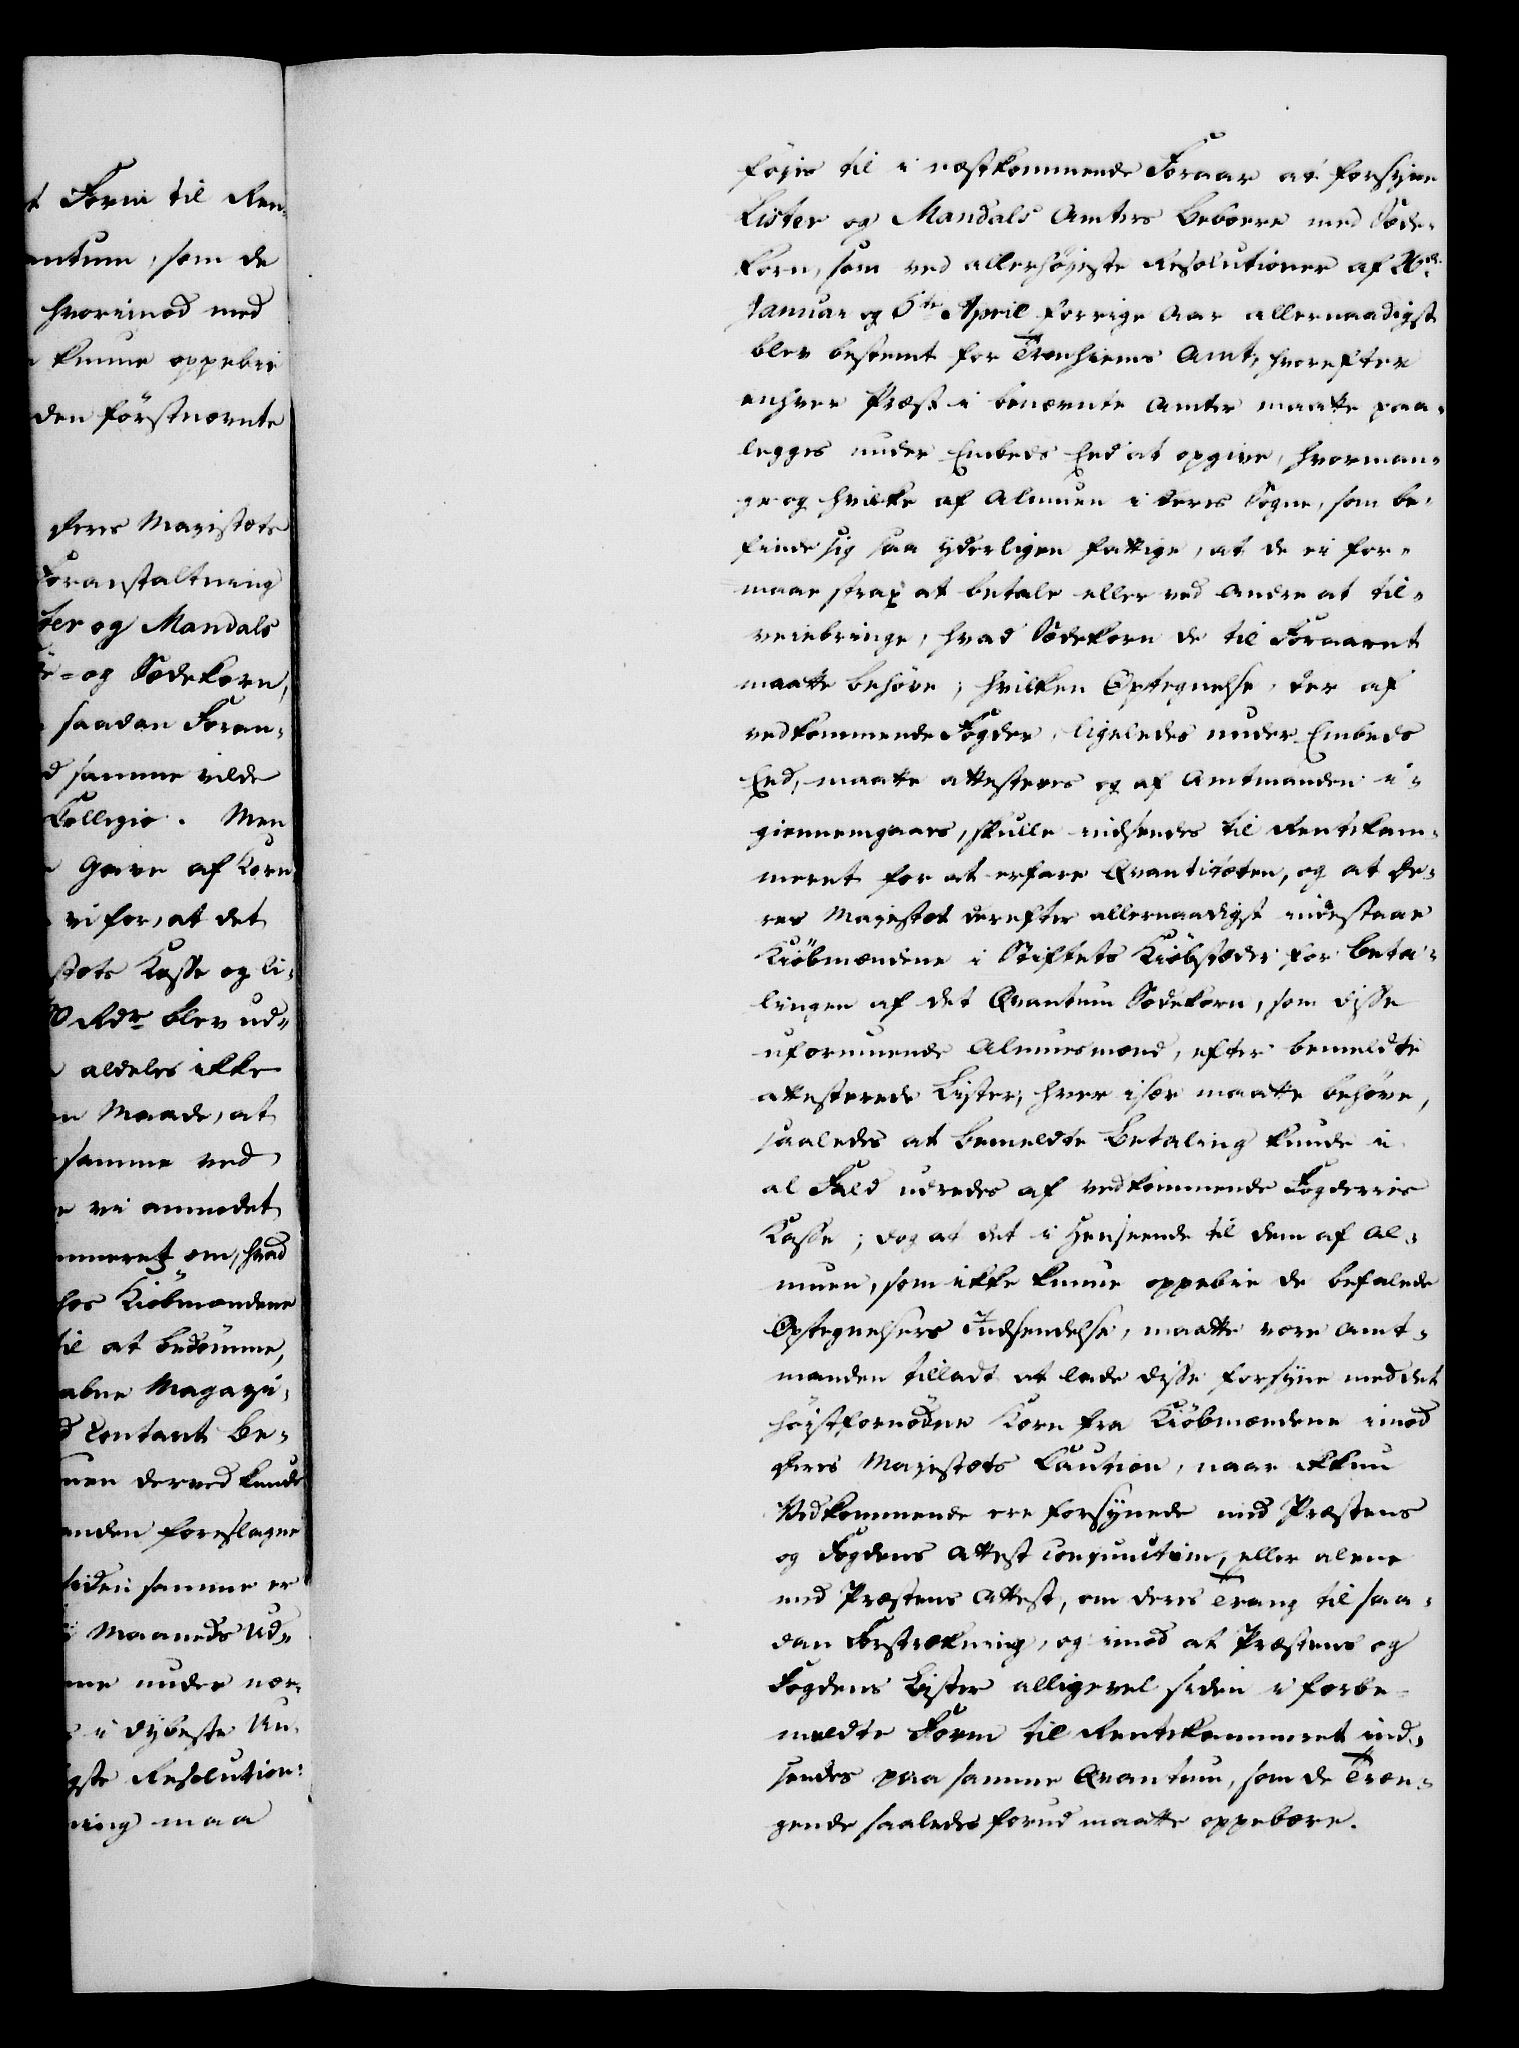 t Form til Ren-
antum, som de
hvorimod med
kunne oppebie
den förstnævnte
Deres Majestæts
Foranstaltning
ter og Mandals
e- og Sædekorn,
saadan Foran-
d samme vilde
Collegio. Men
Gave af Korn
vi for, at det
stæts Kasse og li-
0 Rdr blev ud-
aldeles ikke
n Maade, at
samme ved
e vi anmodet
mmeret om, hvad
hos Kiöbmændene
til at bedömme,
abne Magazi-
d contant Be-
nen derved kunde
anden foreslagne
siden samme er
Maaneds Ud-
me under nær-
s i dybeste Un-
gste Resolution:
ning maa
föjes til i næstkommende Foraar at forsyne
Lister og Mandals Amters Beboere med Sæde-
korn, som ved allerhöjeste Resolutioner af 20de
Januar og 6te April forrige Aar allernaadigst
blev bestemt for Tronhiems Amt, hvorefter
enhver Præst i benævnte Amter maatte paa-
legges under Embeds Eed at opgive, hvorman-
ge og hvilke af Almuen i deres Sogne, som be-
finde sig saa yderligen fattige, at de ei for-
maae strax at betale eller ved Andre at til-
veiebringe, hvad Sædekorn de til Foraaret
maatte behöve; hvilken Optegnelse, der af
vedkommende Fogder, ligeledes under Embeds
Eed, maatte attesteres og af Amtmanden i-
giennemgaaes, skulle indsendes til Rentekam-
meret for at erfare Qvantitæten, og at De-
res Majestæt derefter allernaadigst indestaaer
Kiöbmændene i Stiftets Kiöbstæder for Beta-
lingen af det Qvantum Sædekorn, som disse
uformuende Almuesmænd, efter bemeldte
attesterede Lister, hver især maatte behöve,
saaledes at bemeldte Betaling kunde i
al Fald udredes af vedkommende Fogderies
Kasse; dog at det i Henseende til dem af Al-
muen, som ikke kunne oppebie de befalede
Optegnelsers Indsendelse, maatte være Amt-
manden tilladt at lade disse forsyne med det
höistfornödne Korn fra Kiöbmændene imod
Deres Majestæts Caution, naar ikkun
Vedkommende ere forsynede med Præstens
og Fogdens Attest conjunctim, eller alene
med Præstens Attest, om deres Trang til saa-
dan Forstrækning, og imod at Præstens og
Fogdens Lister alligevel siden i forbe-
meldte Form til Rentekammeret ind-
sendes paa samme Qvantum, som de Træn-
gende saaledes forud maatte oppebære.